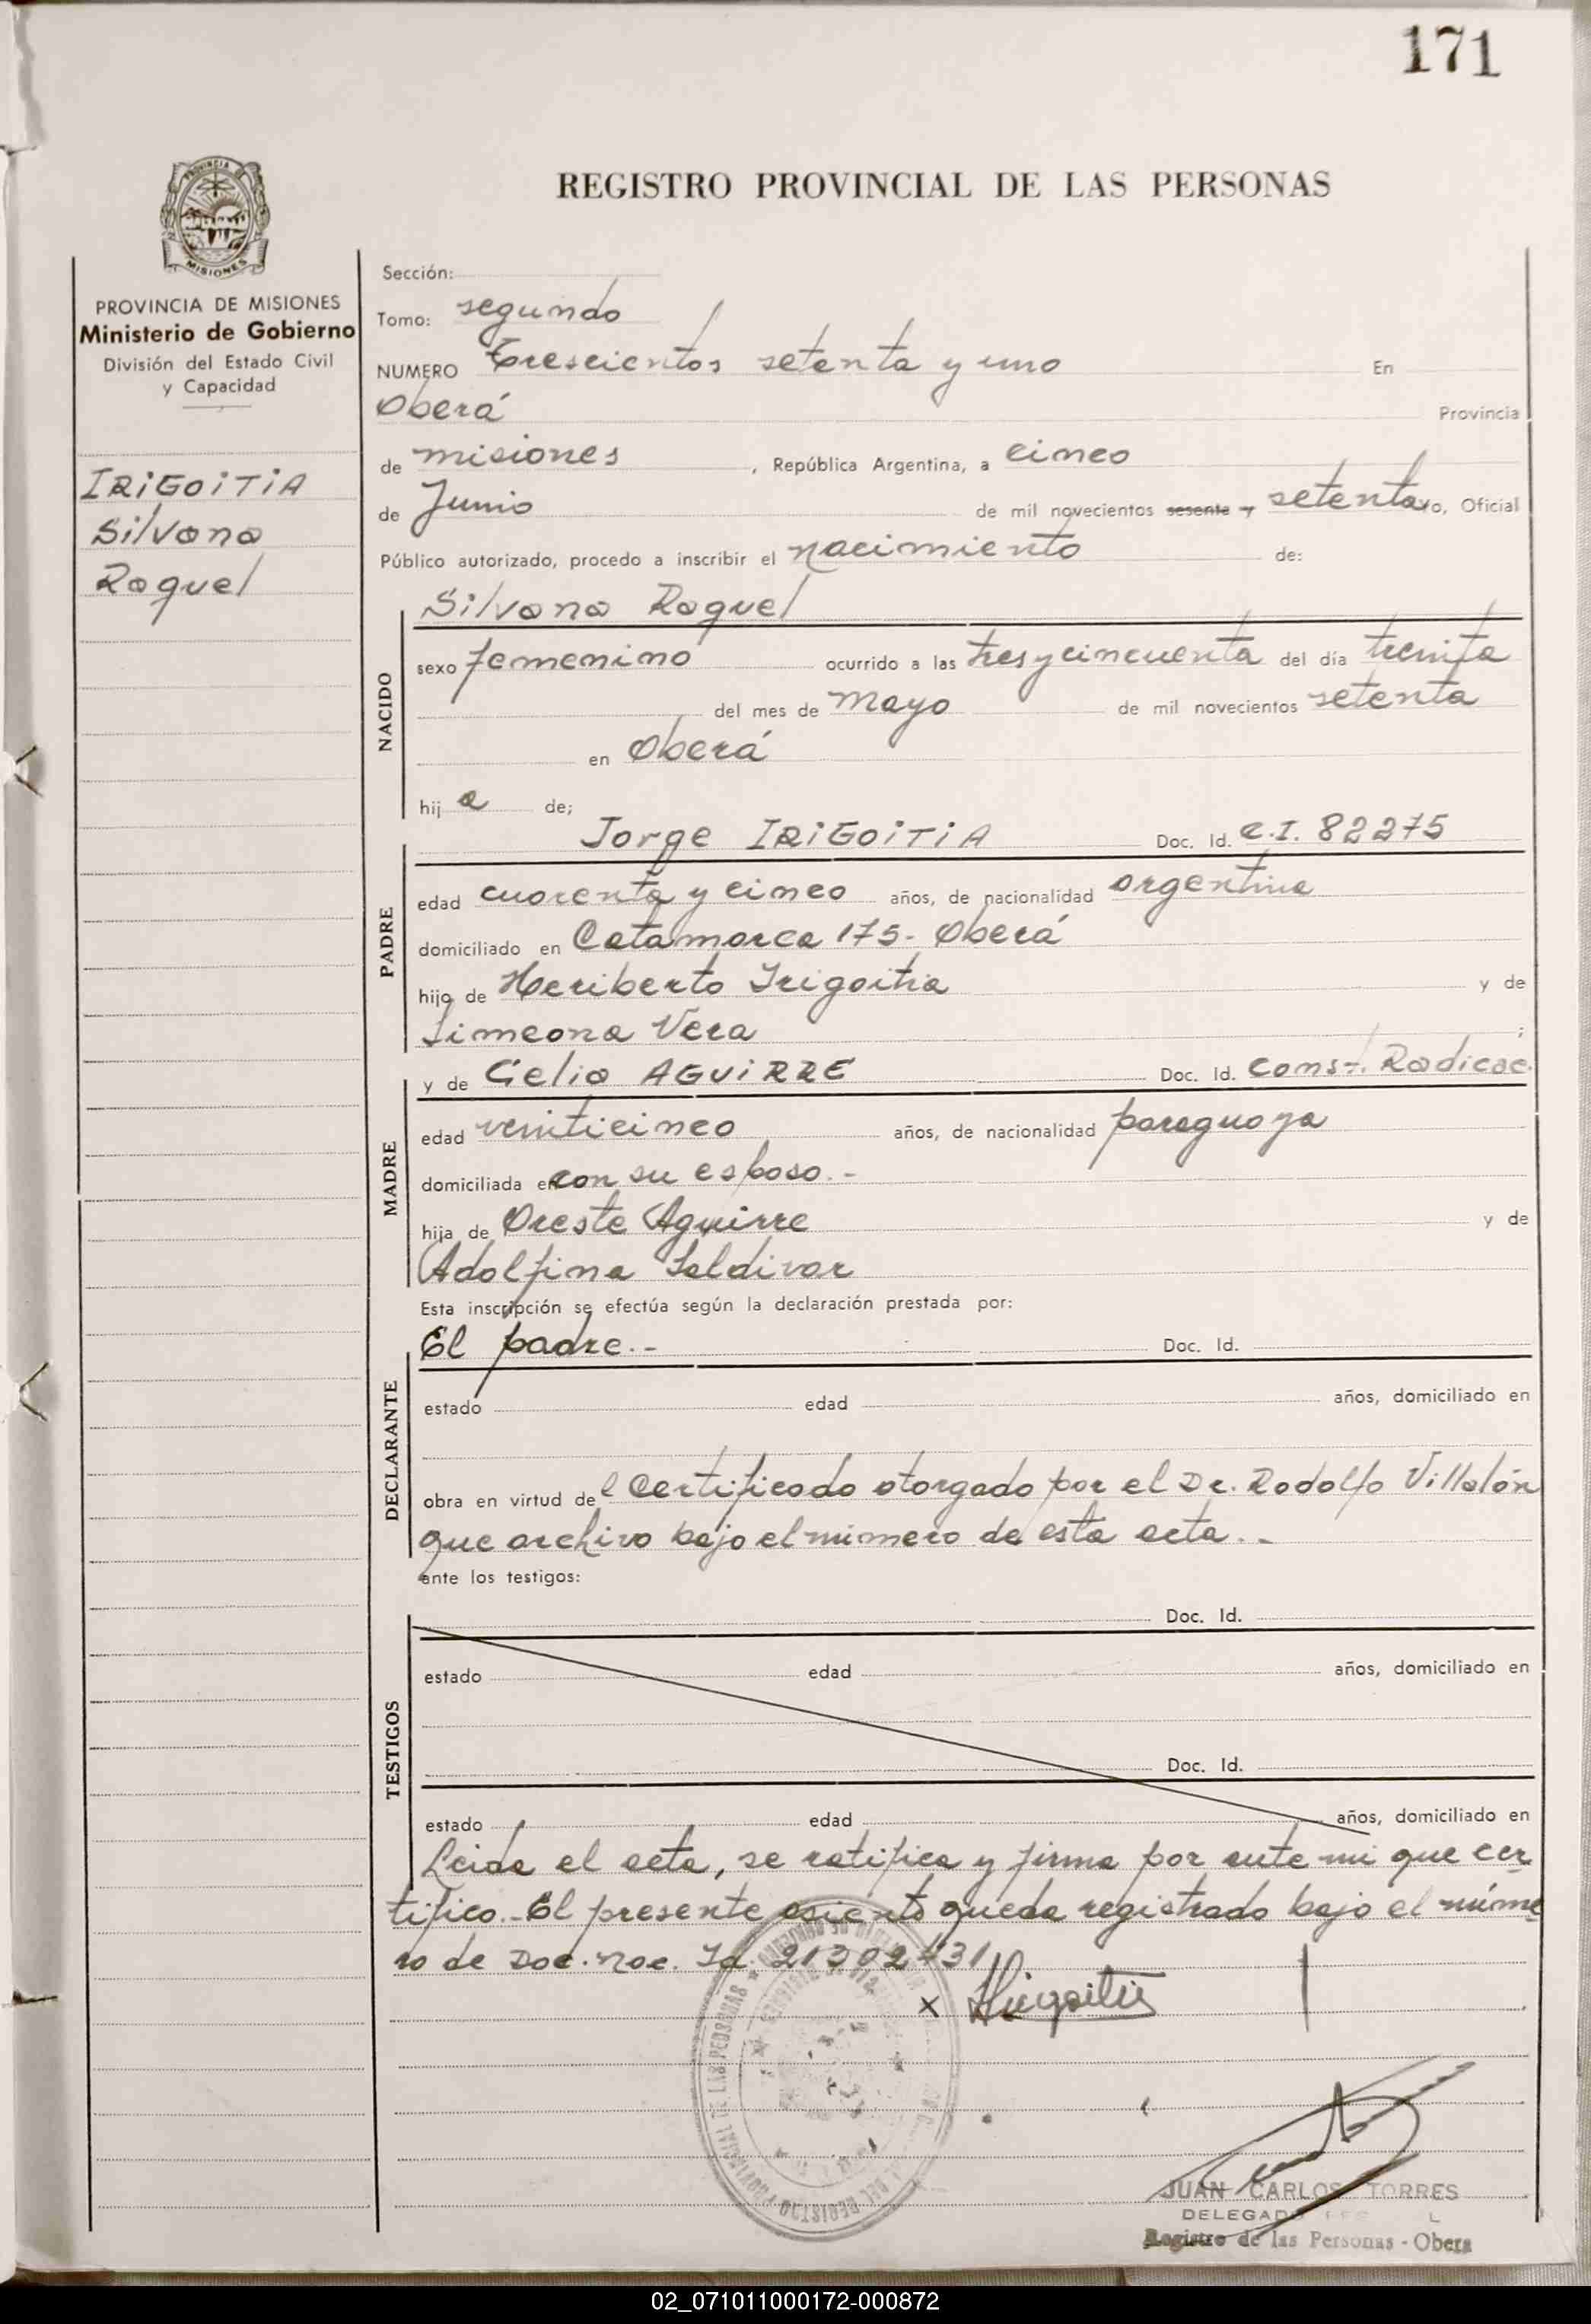 171
REGISTRO PROVINCIAL DE LAS PERSONAS
PROVINCIA DE MISIONES
Ministerio de Gobierno
División del Estado Civil
y Capacidad
IRIGOITIA
Silvana
Raquel
Sección:
Tomo: segundo
NUMERO Trescientos setenta y uno En
Oberá Provincia
de misiones, República Argentina, a cinco
de Junio de mil novecientos sesenta y setenta yo, Oficial
Público autorizado, procedo a inscribir el nacimiento de:
NACIDO
Silvana Raquel
sexo femenino ocurrido a las tres y cincuenta del día treinta
del mes de Mayo de mil novecientos setenta
en Oberá
hija de;
PADRE
Jorge IRIGOITIA Doc. Id. C.I. 82275
edad cuarenta y cinco años, de nacionalidad argentina
domiciliado en Catamarca 175- Oberá
hijo de Heriberto Irigoitia y de
Simeona Vera ;
MADRE
y de Celia AGUIRRE Doc. Id. Const. Radicac.
edad veinticinco años, de nacionalidad paraguaya
domiciliada en con su esposo.-
hija de Oreste Aguirre y de
Adolfina Saldivar
Esta inscripción se efectúa según la declaración prestada por:
DECLARANTE
El padre.- Doc. Id.
estado edad años, domiciliado en
obra en virtud del Certificado otorgado por el Dr. Rodolfo Villalón
que archivo bajo el número de esta acta.-
ante los testigos:
TESTIGOS
Doc. Id.
estado edad años, domiciliado en
Doc. Id.
estado edad años, domiciliado en
Leida el acta, se ratifica y firma por ante mi que cer
tifico.- El presente asiento queda registrado bajo el núme
ro de Doc. Nac. Id. 21302431
x Irigoitia
JUAN CARLOS TORRES
DELEGADO
Registro de las Personas - Obera
02_071011000172-000872